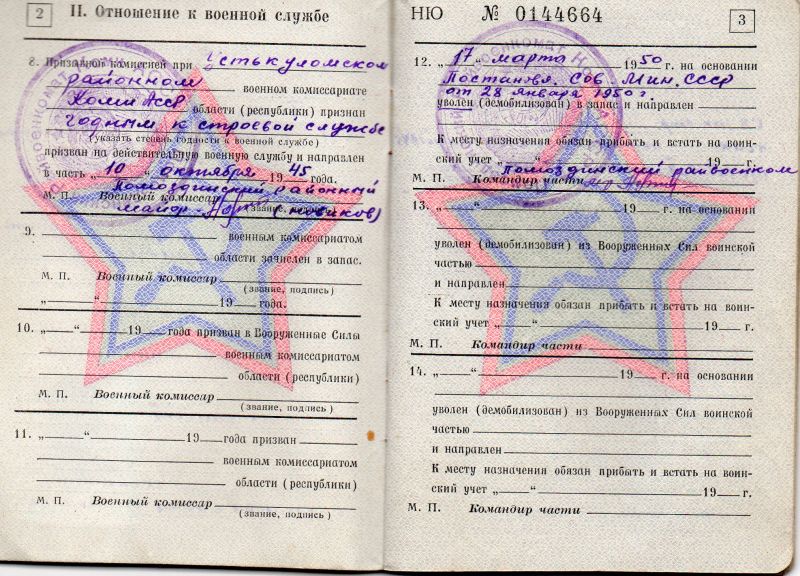 2 II. Отношение к военной службе
8. Призывной комиссией при Устькуломском
районном военном комиссариате
Коми Асср области (республики) признан
годным к строевой службе
(указать степень годности к военной службе)
призван на действительную военную службу и направлен
в часть „10“ октября 1945 года.
Помоздинский районный
М. П. Военный комиссар
майор (Новиков)
(звание, подпись)
9. военным комиссариатом
области зачислен в запас.
М. П. Военный комиссар
(звание, подпись)
„ “ 19 года.
10. „ “ 19 года призван в Вооруженные Силы
военным комиссариатом
области (республики)
М. П. Военный комиссар
(звание, подпись)
11. „ “ 19 года призван
военным комиссариатом
области (республики)
М. П. Военный комиссар
(звание, подпись)
НЮ № 0144664 3
12. „17“ марта 1950 г. на основании
Постановл. Сов. Мин. СССР
от 28 января 1950 г.
уволен (демобилизован) в запас и направлен
К месту назначения обязан прибыть и встать на воин-
ский учет „ “ 19 г.
Помоздинский райвоенком
М. П. Командир части
13. „ “ 19 г. на основании
уволен (демобилизован) из Вооруженных Сил воинской
частью
и направлен
К месту назначения обязан прибыть и встать на воин-
ский учет „ “ 19 г.
М. П. Командир части
14. „ “ 19 г. на основании
уволен (демобилизован) из Вооруженных Сил воинской
частью
и направлен
К месту назначения обязан прибыть и встать на воин-
ский учет „ “ 19 г.
М. П. Командир части